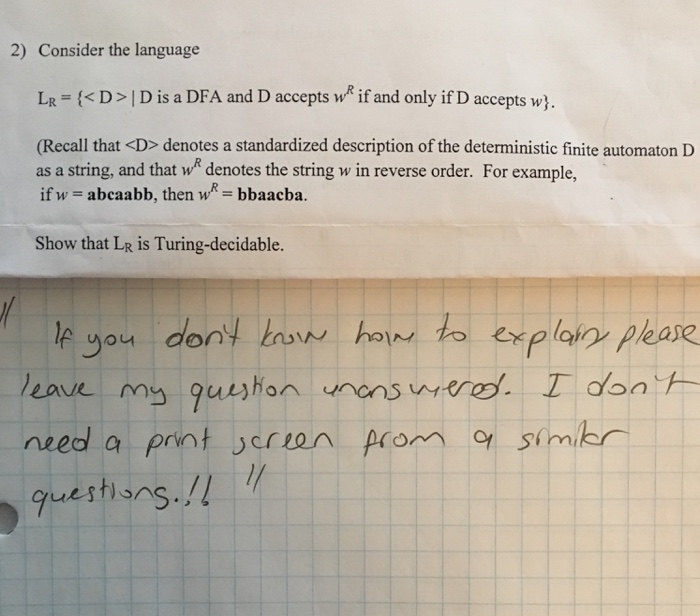 2) Consider the language
L_R = {<D> | D is a DFA and D accepts w^R if and only if D accepts w}.
(Recall that <D> denotes a standardized description of the deterministic finite automaton D
as a string, and that w^R denotes the string w in reverse order. For example,
if w = abcaabb, then w^R = bbaacba.
Show that L_R is Turing-decidable.
" If you don't know how to explain please
leave my question unanswered. I don't
need a print screen from a similar
questions.!! "